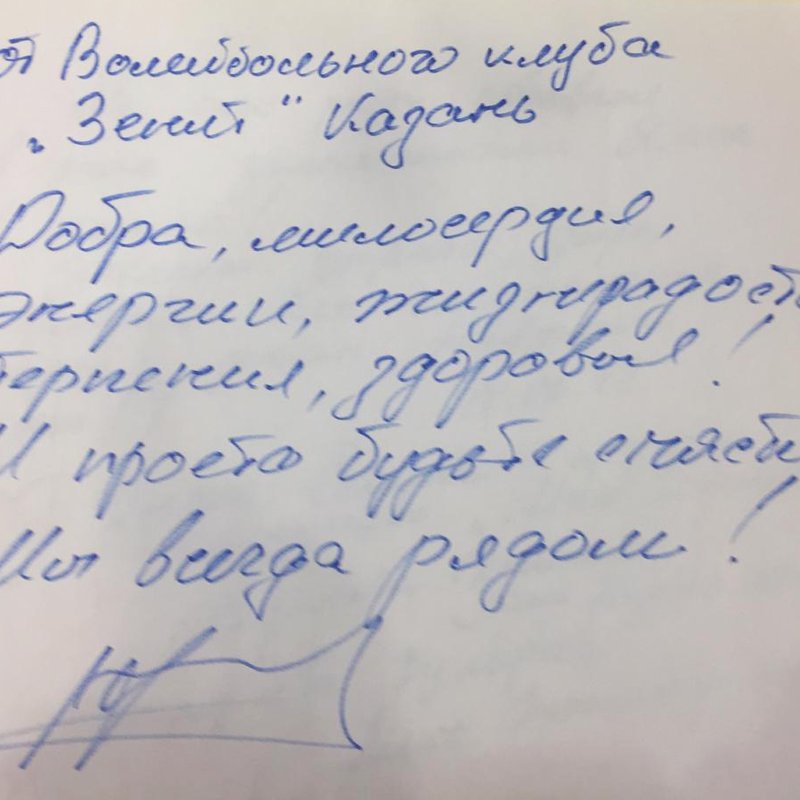 от Волейбольного клуба
„Зенит" Казань
Добра, милосердия,
энергии, жизнерадост
терпения, здоровья!
И просто будьте счастл
Мы всегда рядом!